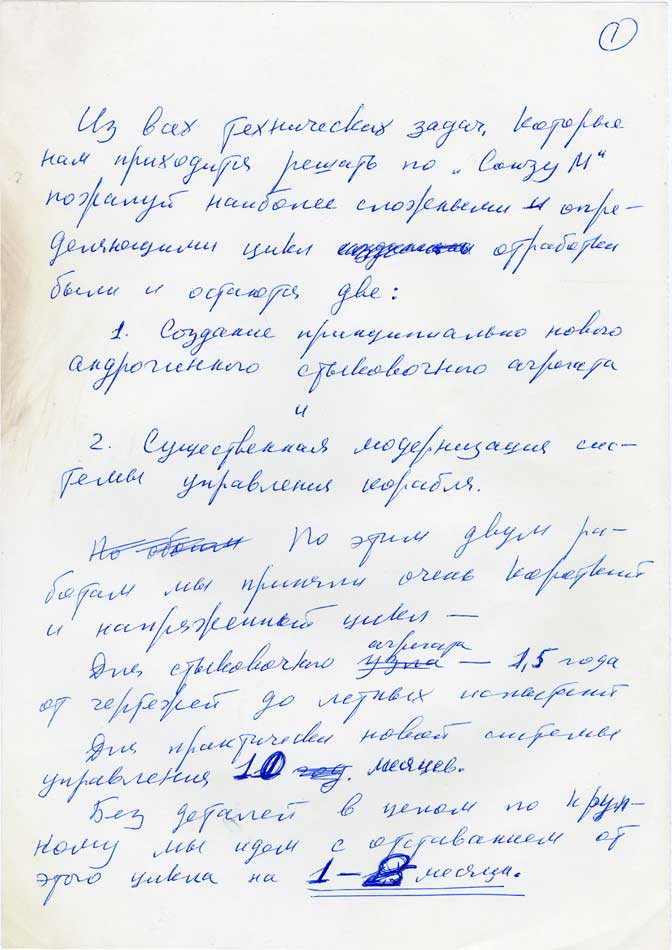 1
Из всех технических задач, которые
нам приходится решать по „Союзу М“
пожалуй наиболее сложными и опре-
деляющими цикл отработки
были и остаются две:
1. Создание принципиально нового
андрогинного стыковочного агрегата
и
2. Существенная модернизация сис-
темы управления корабля.
По обоим По этим двум ра-
ботам мы приняли очень короткий
и напряженный цикл —
агрегата
Для стыковочного узла — 1,5 года
от чертежей до летных испытаний
Для практически новой системы
управления 10 год. месяцев.
Без деталей в целом по круп-
ному мы идем с отставанием от
этого цикла на 1 – 2 месяца.